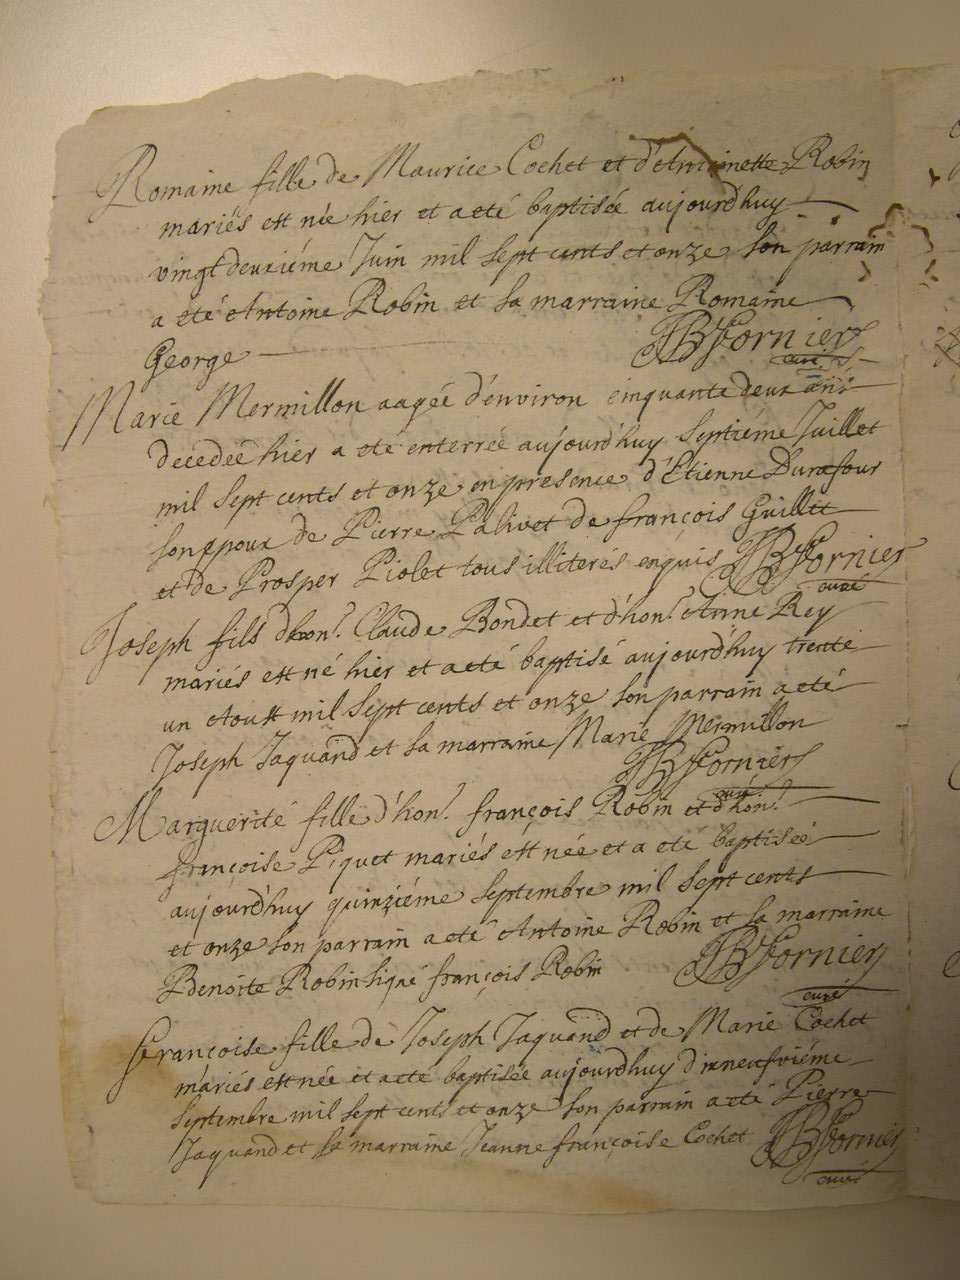 Romaine fille de Maurice Cochet et d'Antoinette Robin
mariés est née hier et a eté baptisée aujourd'huy
vingt deuxiéme Juin mil sept cents et onze son parrain
a eté Antoine Robin et sa marraine Romaine
George JB Fornier
curé
Marie Mermillon aagée d'environ cinquante deux ans
decedeé hier a eté enterreé aujourd'huy septiéme Juillet
mil sept cents et onze en presence d'Etienne Duxfour
son epoux de Pierre Palivet de françois Guillet
et de Prosper Piolet tous illiterés enquis JB Fornier
curé
Joseph fils d'hon.^e Claude Bondet et d'hon.^e Anne Rey
mariés est né hier et a eté baptisé aujourd'huy trente
un Aoust mil sept cents et onze son parrain a eté
Joseph Jaquand et sa marraine Marie Mermillon
JB Fornier
curé
Marguerite fille d'hon.^e françois Robin et d'hon.^e
françoise Piquet mariés est née et a eté baptisée
aujourd'huy quinziéme septembre mil sept cents
et onze son parrain a eté Antoine Robin et sa marraine
Benoite Robin signé françois Robin JB Fornier
curé
Françoise fille de Joseph Jaquand et de Marie Cochet
mariés est née et a eté baptisée aujourd'huy dixneufviéme
septembre mil sept cents et onze son parrain a eté Pierre
Jaquand et sa marraine Jeanne françoise Cochet JB Fornier
curé